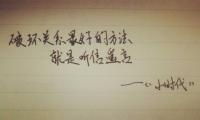 破坏关系最好的方法
就是听信谣言
——《小时代》